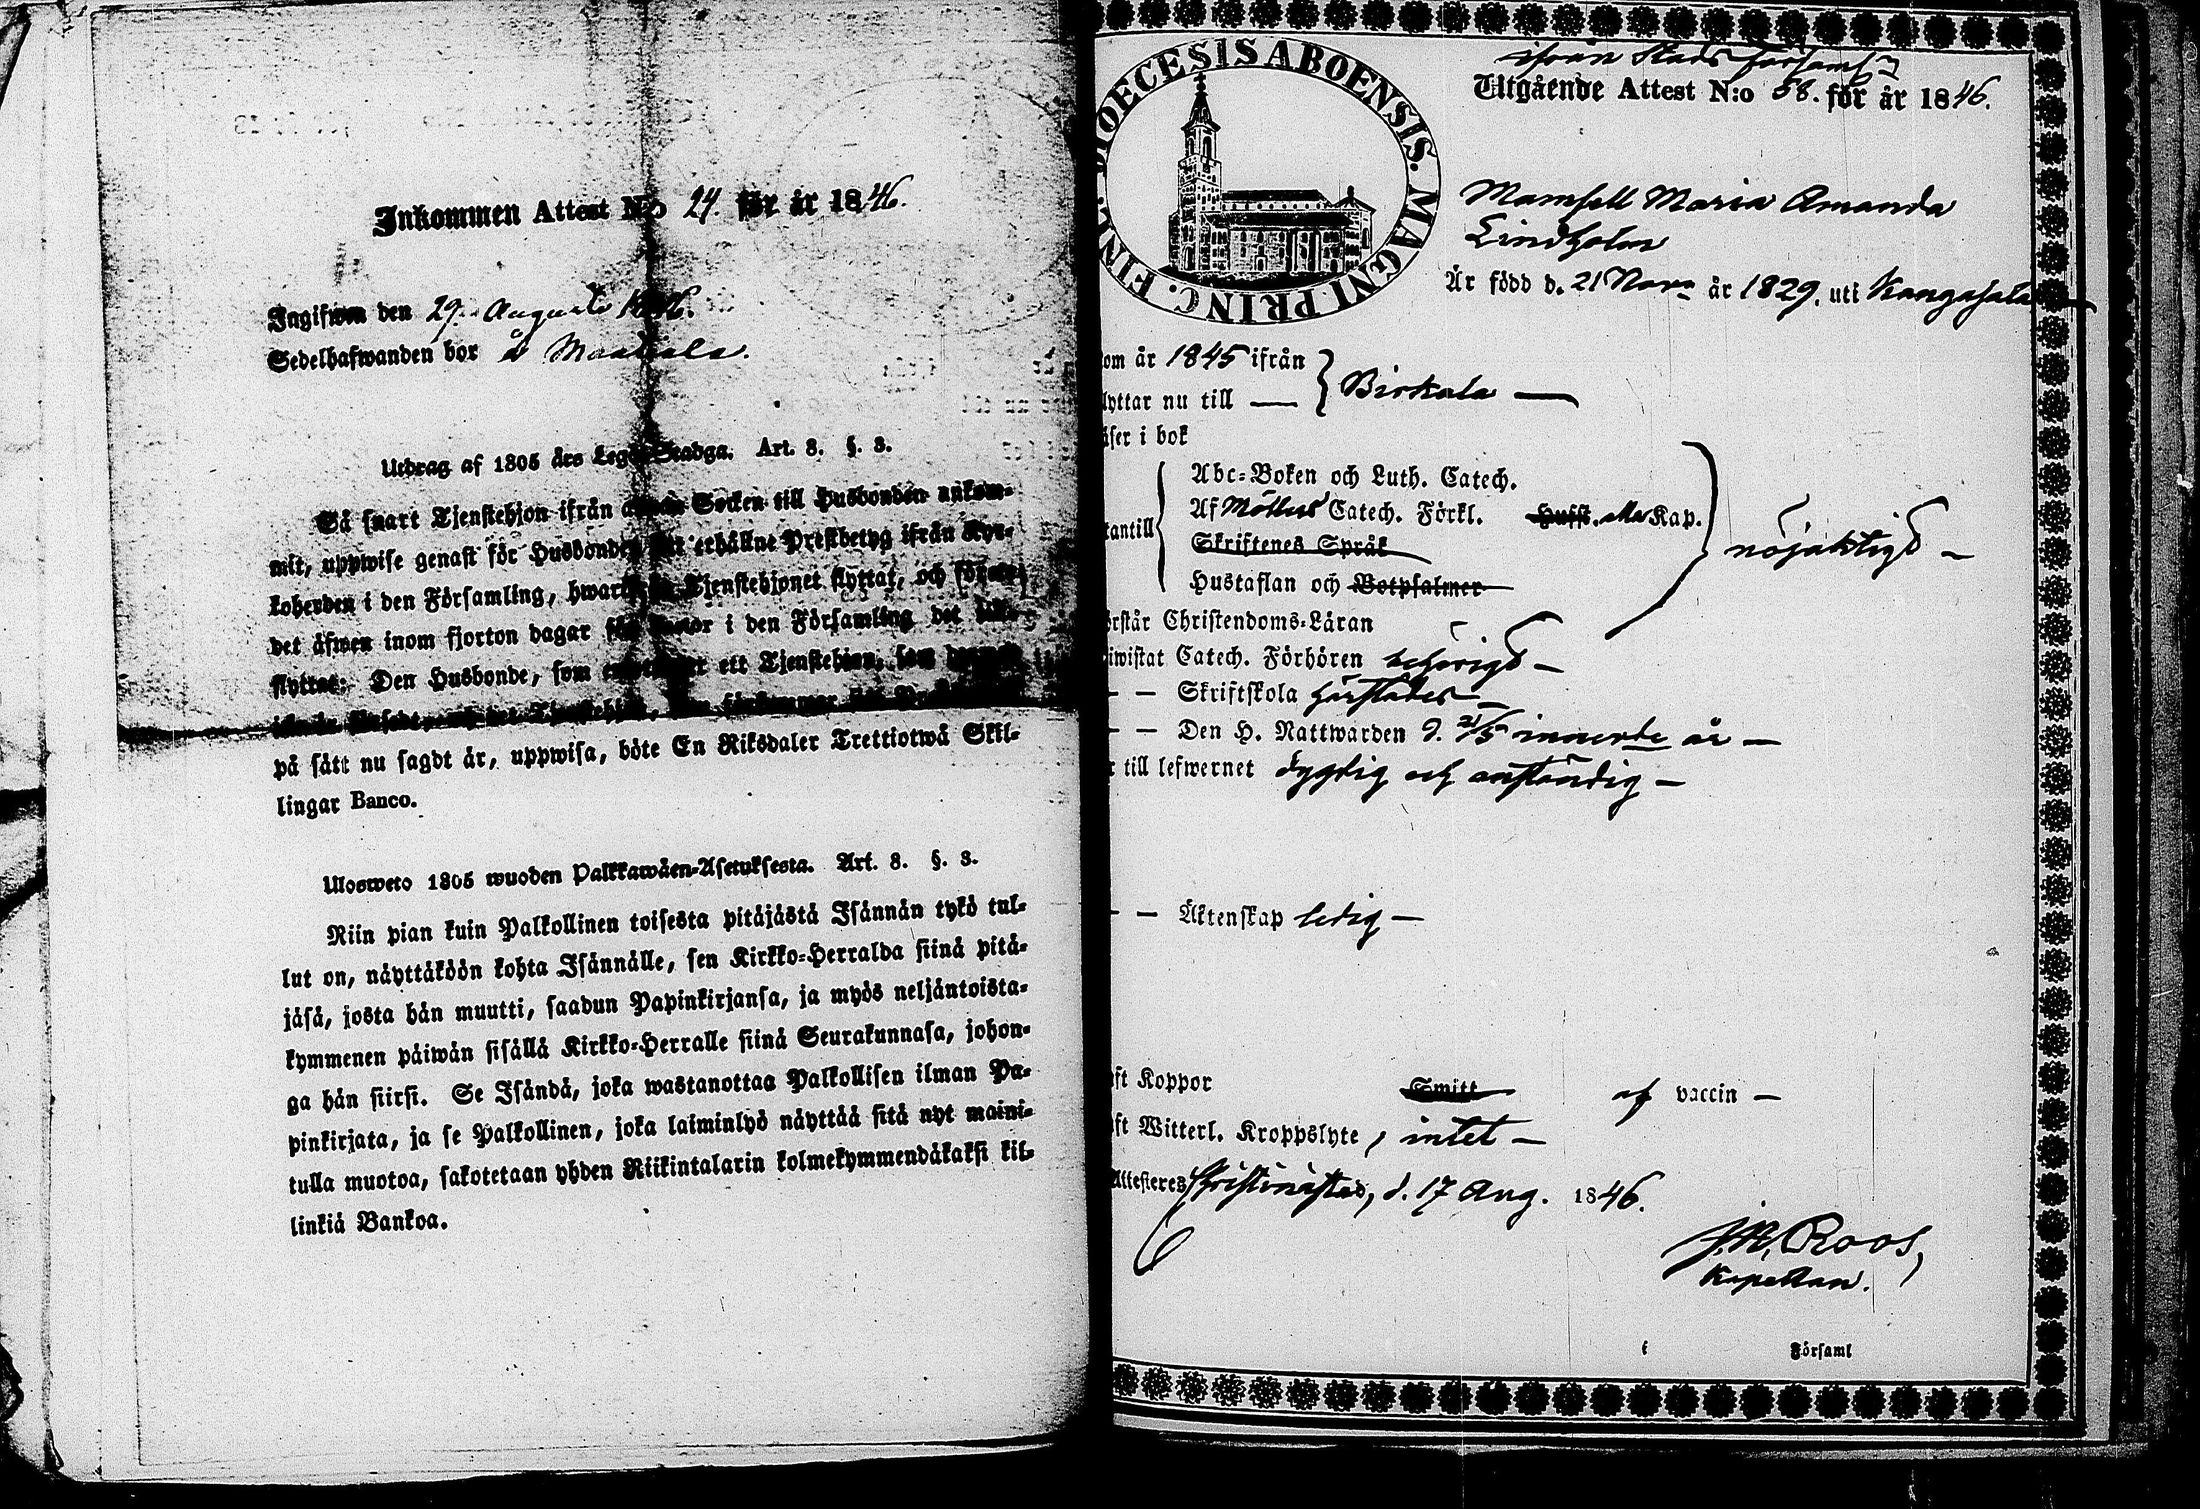 Inkommen Attest N:o 24. för år 1846.
Ingifwen den 29. Augusti 1846.
Sedelhafwanden bor å
Utdrag af 1805 års Lego-Stadga. Art. 8. §. 3.
Så snart Tjenstehjon ifrån annan Socken till Husbonden ankom-
mit, uppwise genast för Husbonden sitt erhållne Prestbetyg ifrån Kyr-
koherden i den Församling, hwarifrån Tjenstehjonet flyttat, och
det äfwen inom fjorton dagar för Pastor i den Församling det
flyttat. Den Husbonde, som ett Tjenstehjon, som
på sätt nu sagdt är, uppwisa, böte En Riksdaler Trettiotwå Skil-
lingar Banco.
Ulosweto 1805 wuoden Palkkawäen-Asetuksesta. Art. 8. §. 3.
Niin pian kuin Palkollinen toisesta pitäjästä Isännän tykö tul-
lut on, näyttäköön kohta Isännälle, sen Kirkko-Herralda siinä pitä-
jäsä, josta hän muutti, saadun Papinkirjansa, ja myös neljäntoista-
kymmenen päiwän sisällä Kirkko-Herralle siinä Seurakunnasa, johon-
ga hän siirsi. Se Isändä, joka wastanottaa Palkollisen ilman Pa-
pinkirjata, ja se Palkollinen, joka laiminlyö näyttää sitä nyt maini-
tulla muotoa, sakotetaan yhden Riikintalarin kolmekymmendäkaksi kil-
linkiä Bankoa.
DIOECESIS ABOENSIS. MAGNI PRINC. FINL.
ifrån Stads Församl
Utgående Attest N:o 58. för år 1846.
Mamsell Maria Amanda
Lindholm
Är född d. 21 Nov. år 1829. uti Kangasala
om år 1845 ifrån
lyttar nu till — } Birkala —
äser i bok
Abc-Boken och Luth. Catech.
Af Möllers Catech. Förkl. Hufst. alla Kap.
tantill Skriftenes Språk nöjaktigt —
Hustaflan och Botpsalmer
örstår Christendoms-Läran
iwistat Catech. Förhören behörigt —
— — Skriftskola härstädes —
— — Den H. Nattwarden d. 21/5 innev:de år —
r till lefwernet dygdig och anständig —
— — Äktenskap ledig —
ft Koppor Smitt af vaccin —
ft Witterl. Kroppslyte, intet —
Attesteres Christinestad, d. 17 Aug. 1846.
J. M. Roos,
Kapellan.
i Församl